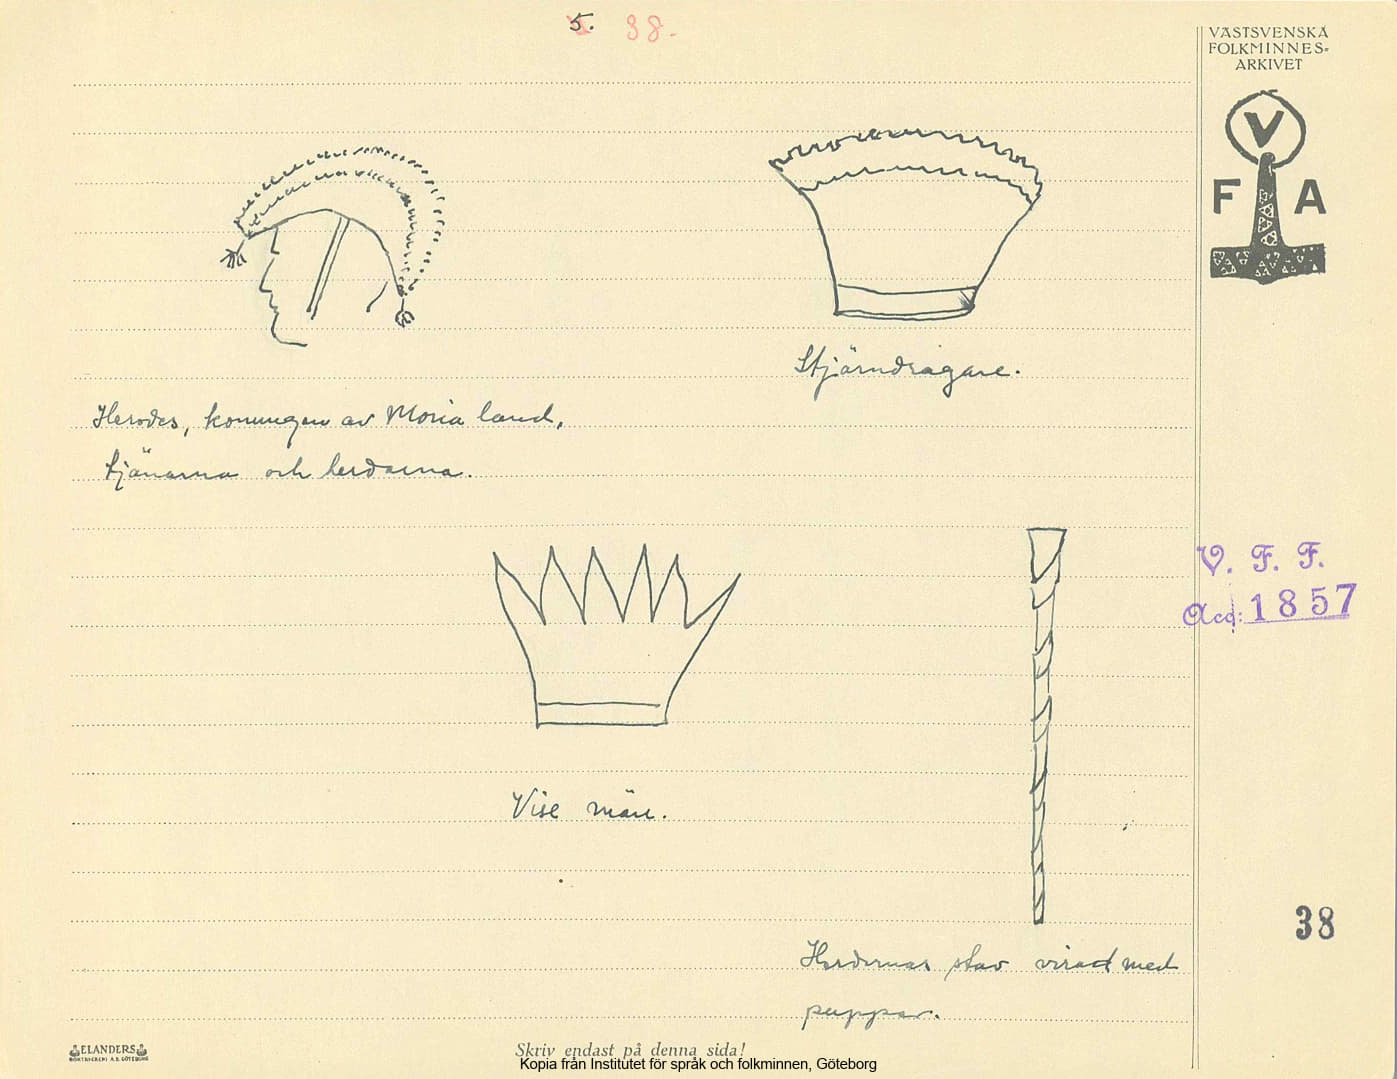 5. 38.
VÄSTSVENSKA
FOLKMINNES-
ARKIVET
V
F A
Stjärndragare.
Herodes, konungen av Moria land,
tjänarna och herdarna.
V. F. F.
Acc: 1857
Vise män.
38
Herdernas stav virad med
pappar.
ELANDERS
BOKTRYCKERI A.B. GÖTEBORG
Skriv endast på denna sida!
Kopia från Institutet för språk och folkminnen, Göteborg